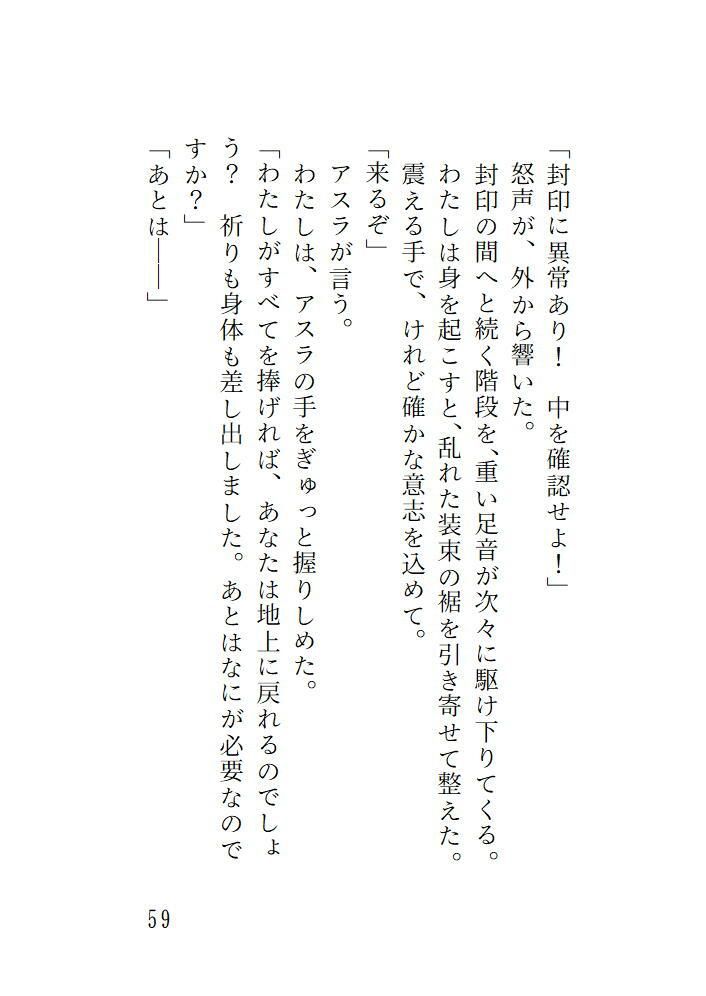 「封印に異常あり！　中を確認せよ！」
怒声が、外から響いた。
封印の間へと続く階段を、重い足音が次々に駆け下りてくる。
わたしは身を起こすと、乱れた装束の裾を引き寄せて整えた。
震える手で、けれど確かな意志を込めて。
「来るぞ」
アスラが言う。
わたしは、アスラの手をぎゅっと握りしめた。
「わたしがすべてを捧げれば、あなたは地上に戻れるのでしょ
う？　祈りも身体も差し出しました。あとはなにが必要なので
すか？」
「あとは――」
59